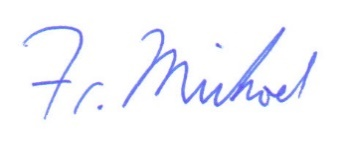 Fr. Michael